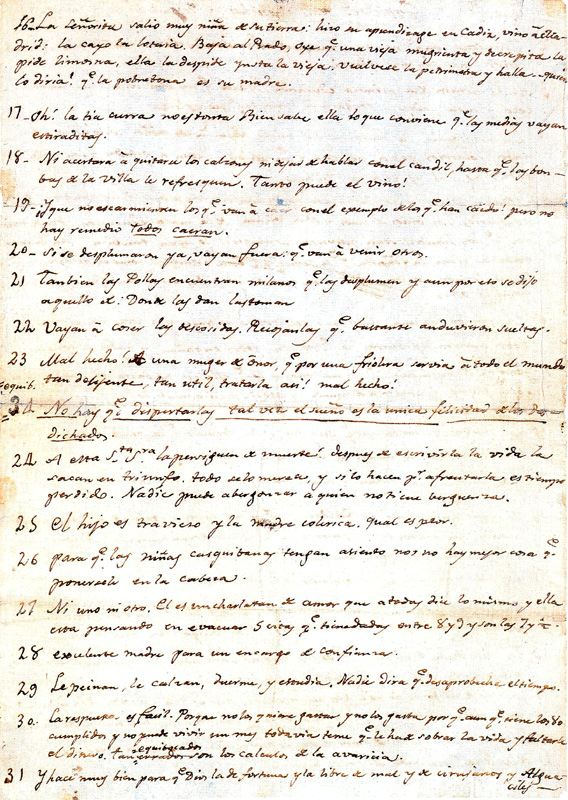 16- La señorita salio muy niña de su tierra: hizo su aprendizage en Cadiz, vino â Ma-
drid: la cayo la loteria. Baja al Prado, oye q.e una vieja mugrienta y decrepita la
pide limosna, ella la despide insta la vieja. vuelvese la petrimetra y halla - quien
lo diria! q.e la pobretona es su madre.
17- Oh! la tia curra no es tonta Bien sabe ella lo que conviene q.e las medias vayan
estiraditas.
18- Ni acertara â quitarse los calzones ni dejar de hablar con el candil, hasta q.e las bom-
bas de la villa le refresquen. Tanto puede el vino!
19- ¡Y que no escarmienten los q.e van â caer con el exemplo de los q.e han caido! pero no
hay remedio todos caeran.
20- Si se desplumaron ya, vayan fuera: q.e van â venir otros.
21 Tambien las Pollas encuentran milanos q.e las desplumen y aun por eto se dijo
aquello de: Donde las dan las toman
22 Vayan â coser las descosidas. Recojanlas q.e bastante anduvieron sueltas.
23 Mal hecho! A una muger de onor, q.e por una friolera servia â todo el mundo
tan delijente, tan util, tratarla asi! mal hecho!
34 No hay q.e dispertarlas tal vez el sueño es la unica felicidad de los des-
dichados.
24 A esta S.ta S.ra la persiguen de muerte! despues de escrivirla la vida la
sacan en triunfo. todo se lo merece, y si lo hacen p.r afrentarla es tiempo
perdido. Nadie puede abergonzar â quien no tiene berguenza.
25 El hijo es travieso y la madre colerica. qual es peor.
26 para q.e las niñas casquibanas tengan asiento nos no hay mejor cosa q.e
ponerselo en la cabeza.
27 Ni uno ni otro. El es un charlatan de amor que a todas dice lo mismo, y ella
esta pensando en evacuar 5 citas q.e tiene dadas entre 8 y 9 y son las 7 y ½.
28 excelente madre para un encargo de confianza.
29 Le peinan, le calzan, duerme, y estudia. Nadie dira q.e desaprobecha el tiempo.
30. La respuesta es facil. Porque no los quiere gastar y no los gasta por q.e aun q.e tiene los 80
cumplidos y no puede vivir un mes todavia teme q.e le ha de sobrar la vida y faltarle
el dinero. tan equibocados son los calculos de la avaricia.
31 Y hace muy bien para q.e Dios la de fortuna y la libre de mal y de cirujanos y Algua
ciles -